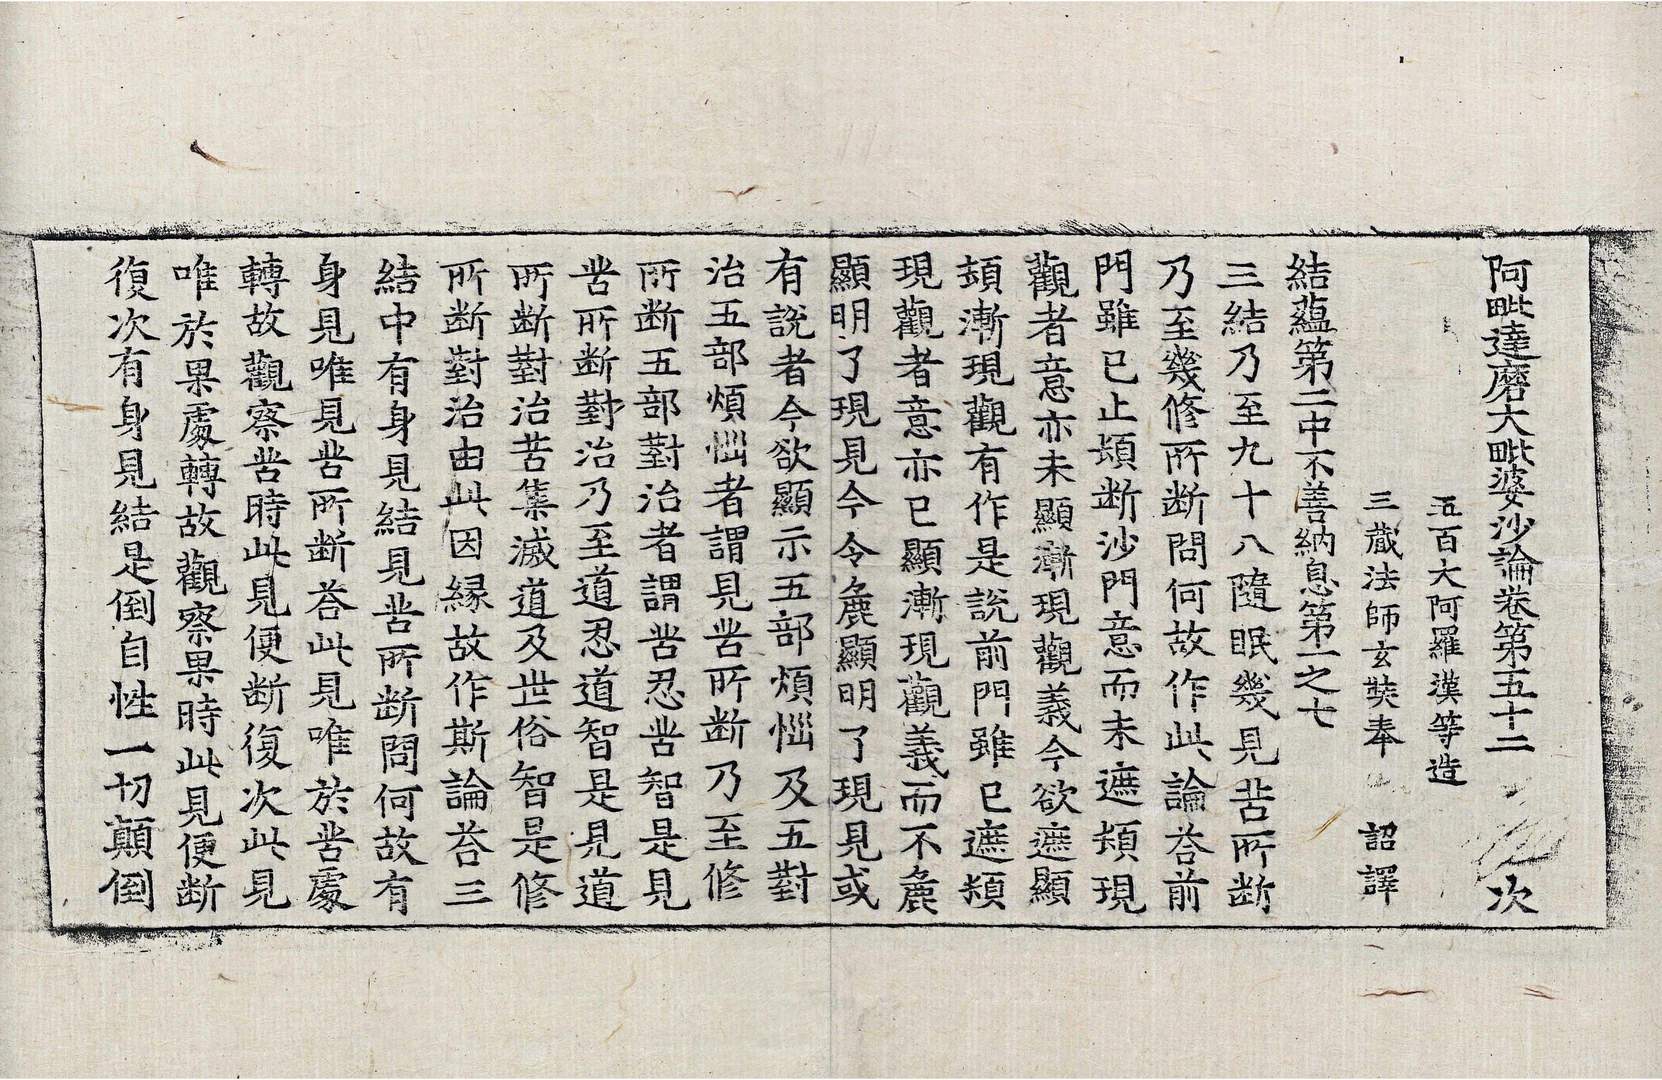 阿毗達磨大毗婆沙論卷第五十二　次
五百大阿羅漢等造
三藏法師玄奘奉　詔譯
結蘊第二中不善納息第一之七
三結乃至九十八隨眠幾見苦所断
乃至幾修所断問何故作此論荅前
門雖已止頪断沙門意而未遮頪現
觀者意亦未顯漸現觀義今欲遮顯
頓漸現觀有作是說前門雖已遮頪
現觀者意亦已顯漸現觀義而不麁
顯明了現見今令麁顯明了現見或
有說者今欲顯示五部煩惱及五對
治五部煩惱者謂見苦所断乃至修
所断五部對治者謂苦忍苦智是見
苦所断對治乃至道忍道智是見道
所断對治苦集滅道及世俗智是修
所断對治由此因緣故作斯論荅三
結中有身見結見苦所断問何故有
身見唯見苦所断荅此見唯於苦處
轉故觀察苦時此見便断復次此見
唯於果處轉故觀察果時此見便断
復次有身見結是倒自性一切顚倒